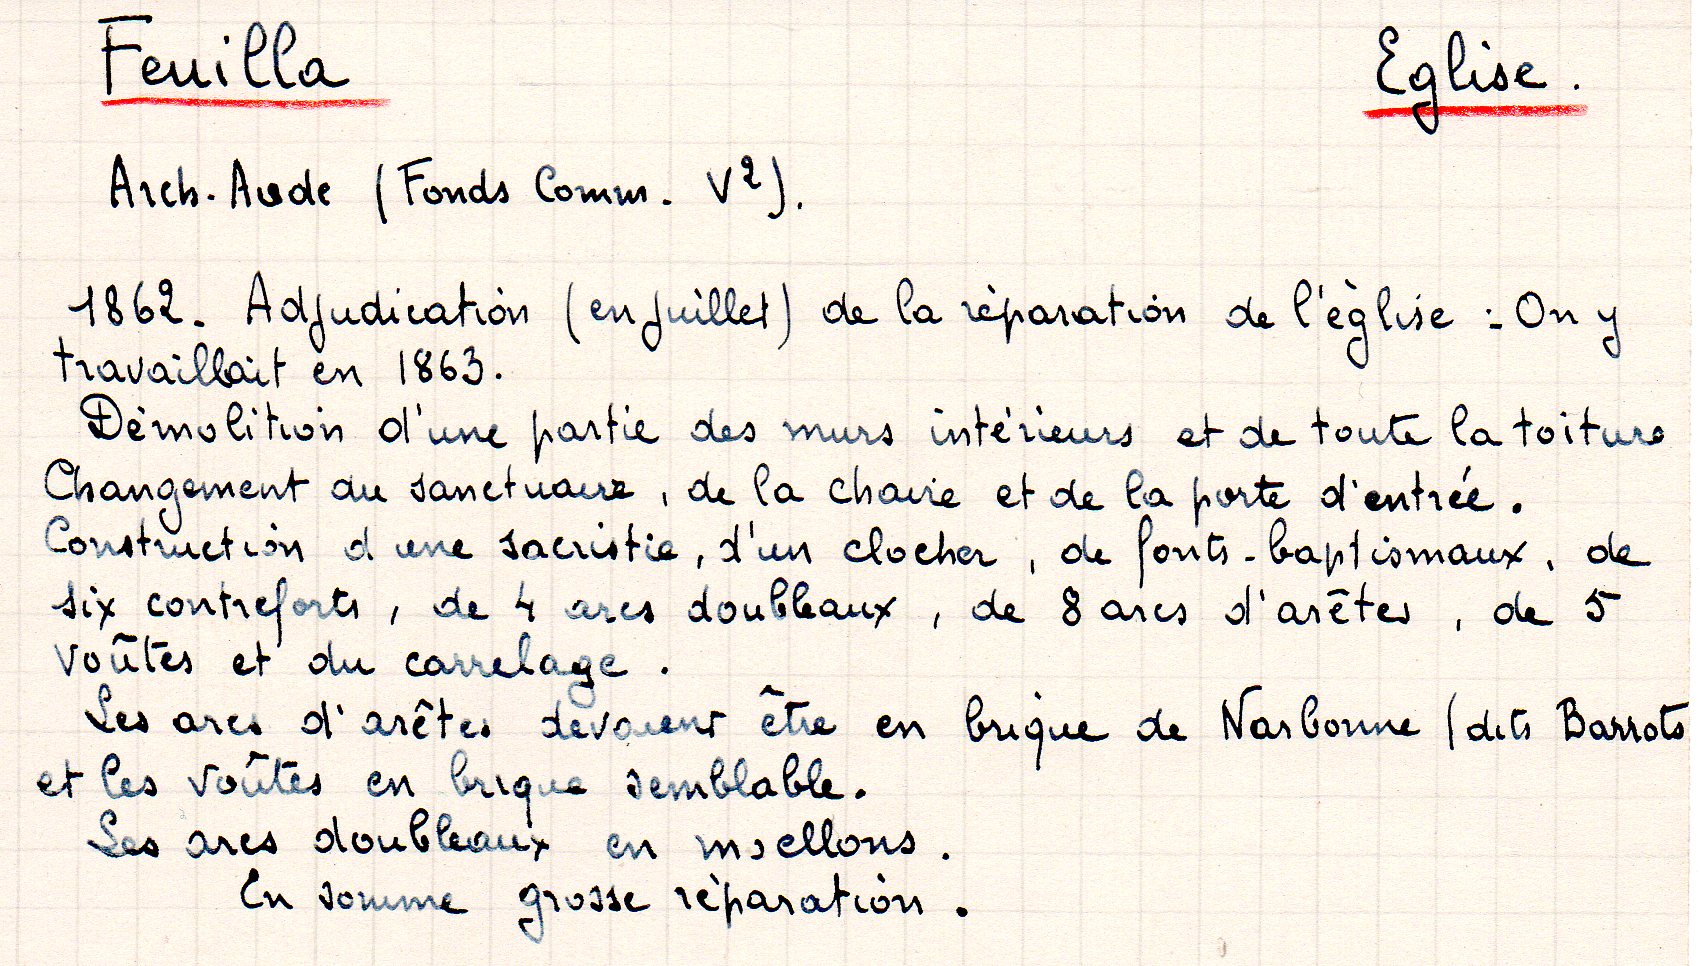 Feuilla Eglise.
Arch. Aude (Fonds Comm. V²).
1862. Adjudication (en juillet) de la réparation de l'église : On y
travaillait en 1863.
Démolition d'une partie des murs intérieurs et de toute la toiture
Changement du sanctuaire, de la chaire et de la porte d'entrée.
Construction d'une sacristie, d'un clocher, de fonts-baptismaux, de
six contreforts, de 4 arcs doubleaux, de 8 arcs d'arêtes, de 5
voûtes et du carrelage.
Les arcs d'arêtes devaient être en brique de Narbonne (dits Barrots
et les voûtes en brique semblable.
Les arcs doubleaux en moellons.
En somme grosse réparation.